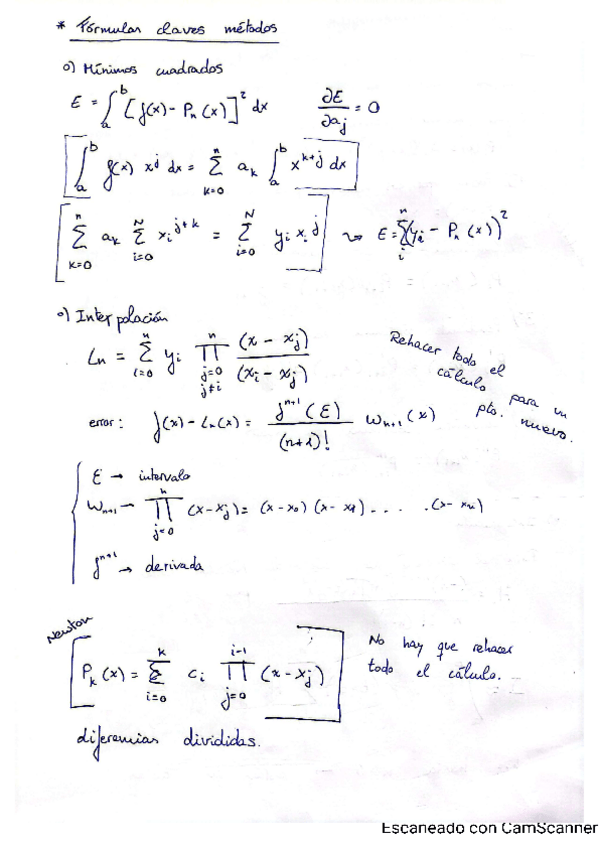 * Fórmulas claves métodos
o) Mínimos cuadrados
E = ∫_a^b [f(x) - Pn(x)]² dx    ∂E/∂aj = 0
∫_a^b f(x) x^j dx = Σ_{k=0}^n ak ∫_a^b x^{k+j} dx
Σ_{k=0}^n ak Σ_{i=0}^N xi^{j+k} = Σ_{i=0}^N yi xi^j ⇝ E = Σ_i^n (yi - Pn(x))²
o) Interpolación
Ln = Σ_{i=0}^n yi Π_{j=0, j≠i}^n (x - xj)/(xi - xj)
Rehacer todo el
cálculo para un
pto. nuevo.
error: f(x) - Ln(x) = f^{n+1}(ξ)/(n+1)! Wn+1(x)
ξ → intervalo
Wn+1 → Π_{j=0}^n (x-xj) = (x-x0) (x-x1) .... (x-xn)
f^{n+1} → derivada
Newton
Pk(x) = Σ_{i=0}^k ci Π_{j=0}^{i-1} (x-xj)
No hay que rehacer
todo el cálculo.
diferencias divididas.
Escaneado con CamScanner